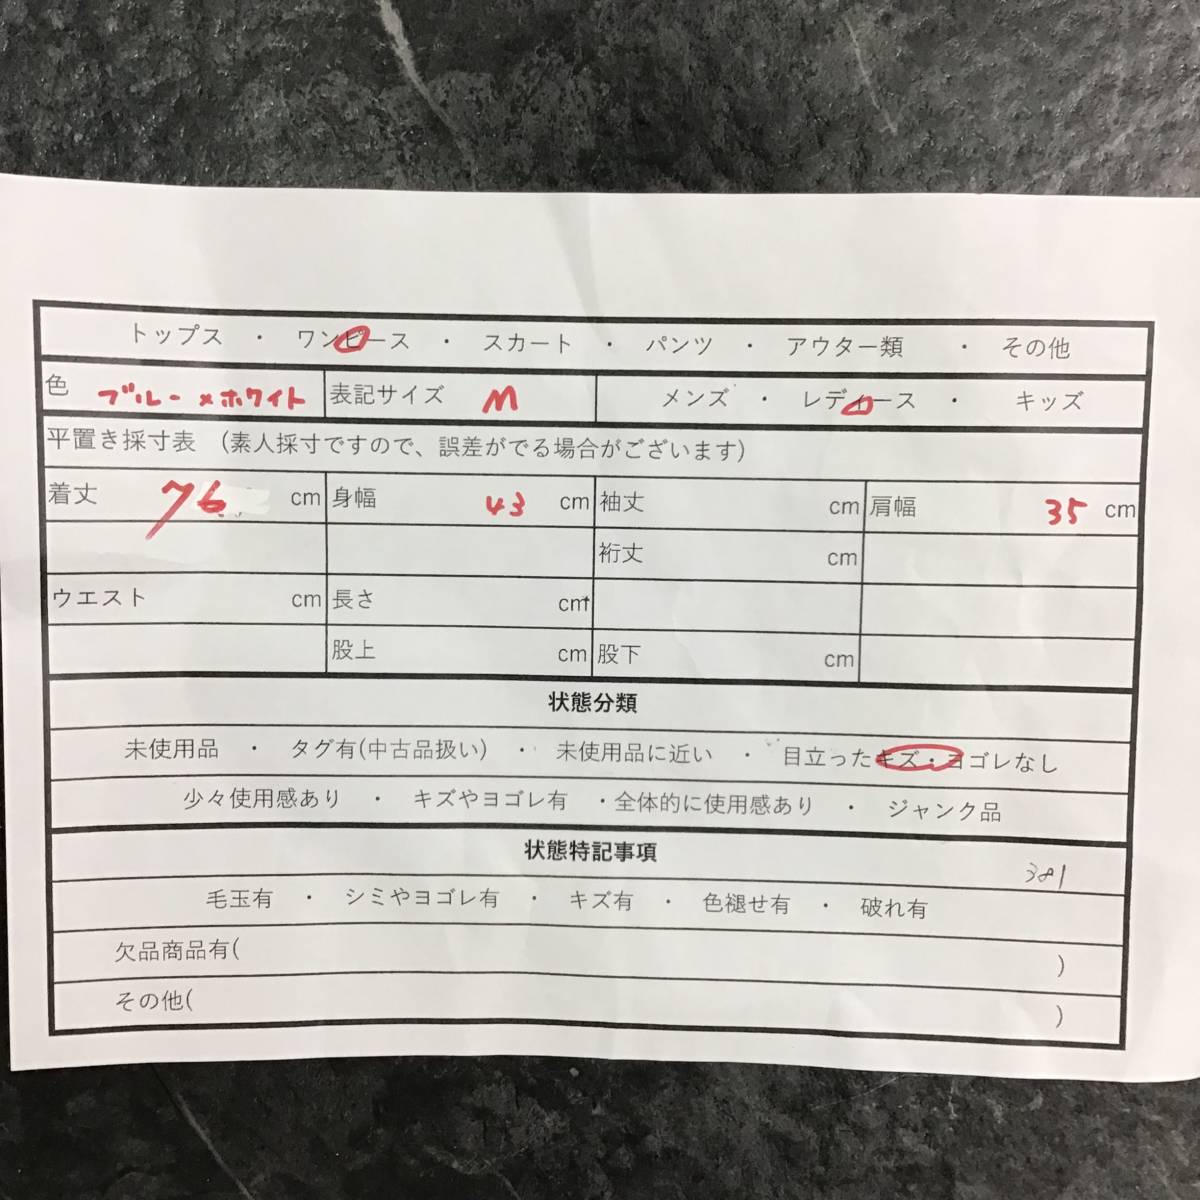 トップス ・ ワンピース ・ スカート ・ パンツ ・ アウター類 ・ その他
色 ブルー×ホワイト 表記サイズ M メンズ ・ レディース ・ キッズ
平置き採寸表 （素人採寸ですので、誤差がでる場合がございます）
着丈 76 cm 身幅 43 cm 袖丈 cm 肩幅 35 cm
裄丈 cm
ウエスト cm 長さ cm
股上 cm 股下 cm
状態分類
未使用品 ・ タグ有(中古品扱い) ・ 未使用品に近い ・ 目立ったキズ・ヨゴレなし
少々使用感あり ・ キズやヨゴレ有 ・全体的に使用感あり ・ ジャンク品
状態特記事項
381
毛玉有 ・ シミやヨゴレ有 ・ キズ有 ・ 色褪せ有 ・ 破れ有
欠品商品有( )
その他( )